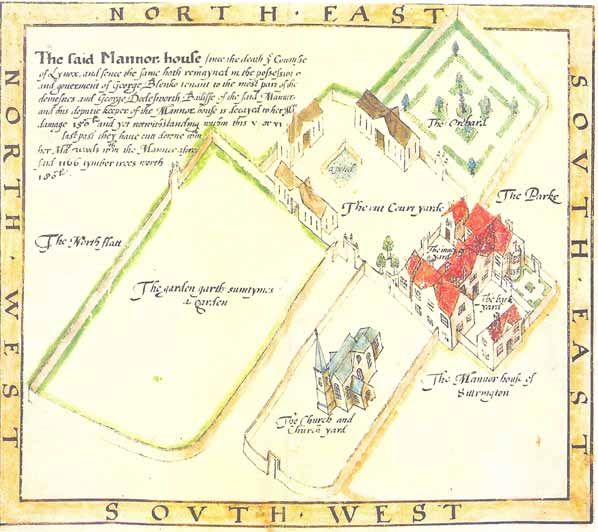 NORTH · EAST
The said Mannor house since the death of Countesse
of Lynox, and sence the same hath remayned in the possession
and goverment of George Blenko tenant to the most part of the
demesnes and George Dodesworth Bailiffe of the said Mannor
and his deputie keeper of the Mannor house is decayed to her Ma
damage and yet notwithstanding within this
last past they have cutt downe within
her Ma woods within the Mannor afore
said 1166 tymber trees worth
NORTH · WEST
SOVTH · EAST
The Orchard
a pond
The Parke
The out Court yarde
The North flatt
The inner yard
The garden garth sumtymes
a garden
The back
yard
The Mannor house of
Settrington
The Church and
Church yard
SOVTH WEST